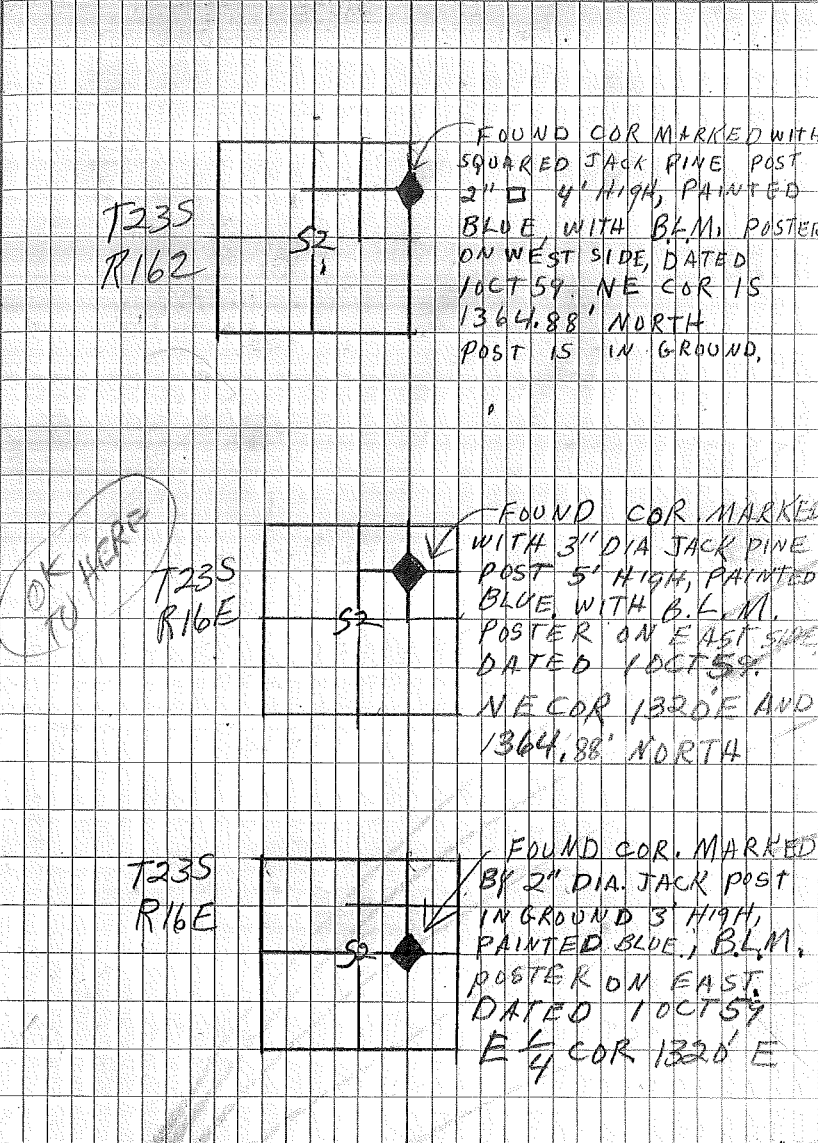 T23S
R162
S2
FOUND COR MARKED WITH
SQUARED JACK PINE POST
2" □ 4' HIGH, PAINTED
BLUE, WITH B.L.M. POSTER
ON WEST SIDE, DATED
1OCT59. NE COR IS
1364.88' NORTH
POST IS IN GROUND.
OK
TO HERE
T23S
R16E
S2
FOUND COR. MARKED
WITH 3" DIA JACK PINE
POST 5' HIGH, PAINTED
BLUE, WITH B.L.M.
POSTER ON EAST SIDE
DATED 1 OCT 59.
NE COR 1320' E AND
1364.88' NORTH
T23S
R16E
S2
FOUND COR. MARKED
BY 2" DIA. JACK POST
IN GROUND 3' HIGH,
PAINTED BLUE, B.L.M.
POSTER ON EAST.
DATED 1 OCT 59
E 1/4 COR 1320' E